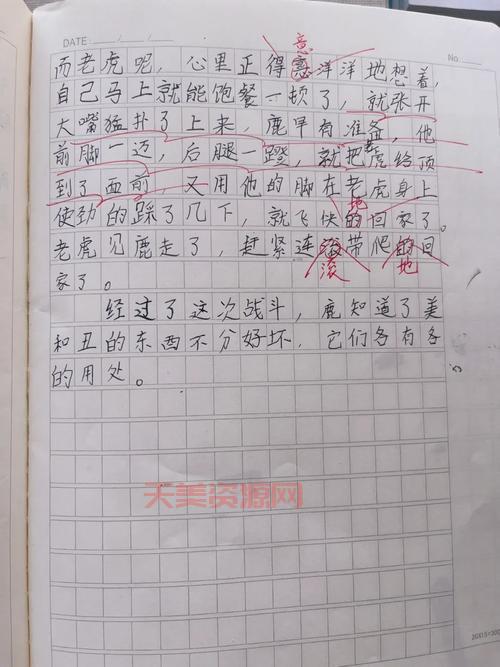 DATE: / /
No.
意
而老虎呢，心里正得意洋洋地想着，
自己马上就能饱餐一顿了，就张开
大嘴猛扑了上来，鹿早有准备，他
前脚一迈，后腿一蹬，就把虎给顶
到了面前，又用他的脚在老虎身上
地
使劲的踩了几下，就飞快的回家了。
老虎见鹿走了，赶紧连滚带爬的回
滚 地
家了。
经过了这次战斗，鹿知道了美
和丑的东西不分好坏，它们各有各
的用处。
天美资源网